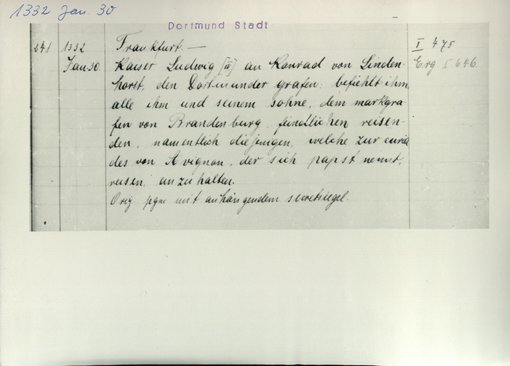 1332 Jan. 30
Dortmund Stadt
241 1332 Frankfurt. — I 475
Jan 30. Kaiser Ludwig [IV] an Konrad von Linden- Erg I 646
horst, den Dortmunder grafen, befiehlt ihm
alle ihm und seinem sohne, dem markgra-
fen von Brandenburg, feindlichen reisen-
den, namentlich diejenigen, welche zur curie
des von Avignon, der sich papst nennt,
reisen, anzuhalten.
Orig pgm mit anhängendem secretsiegel.